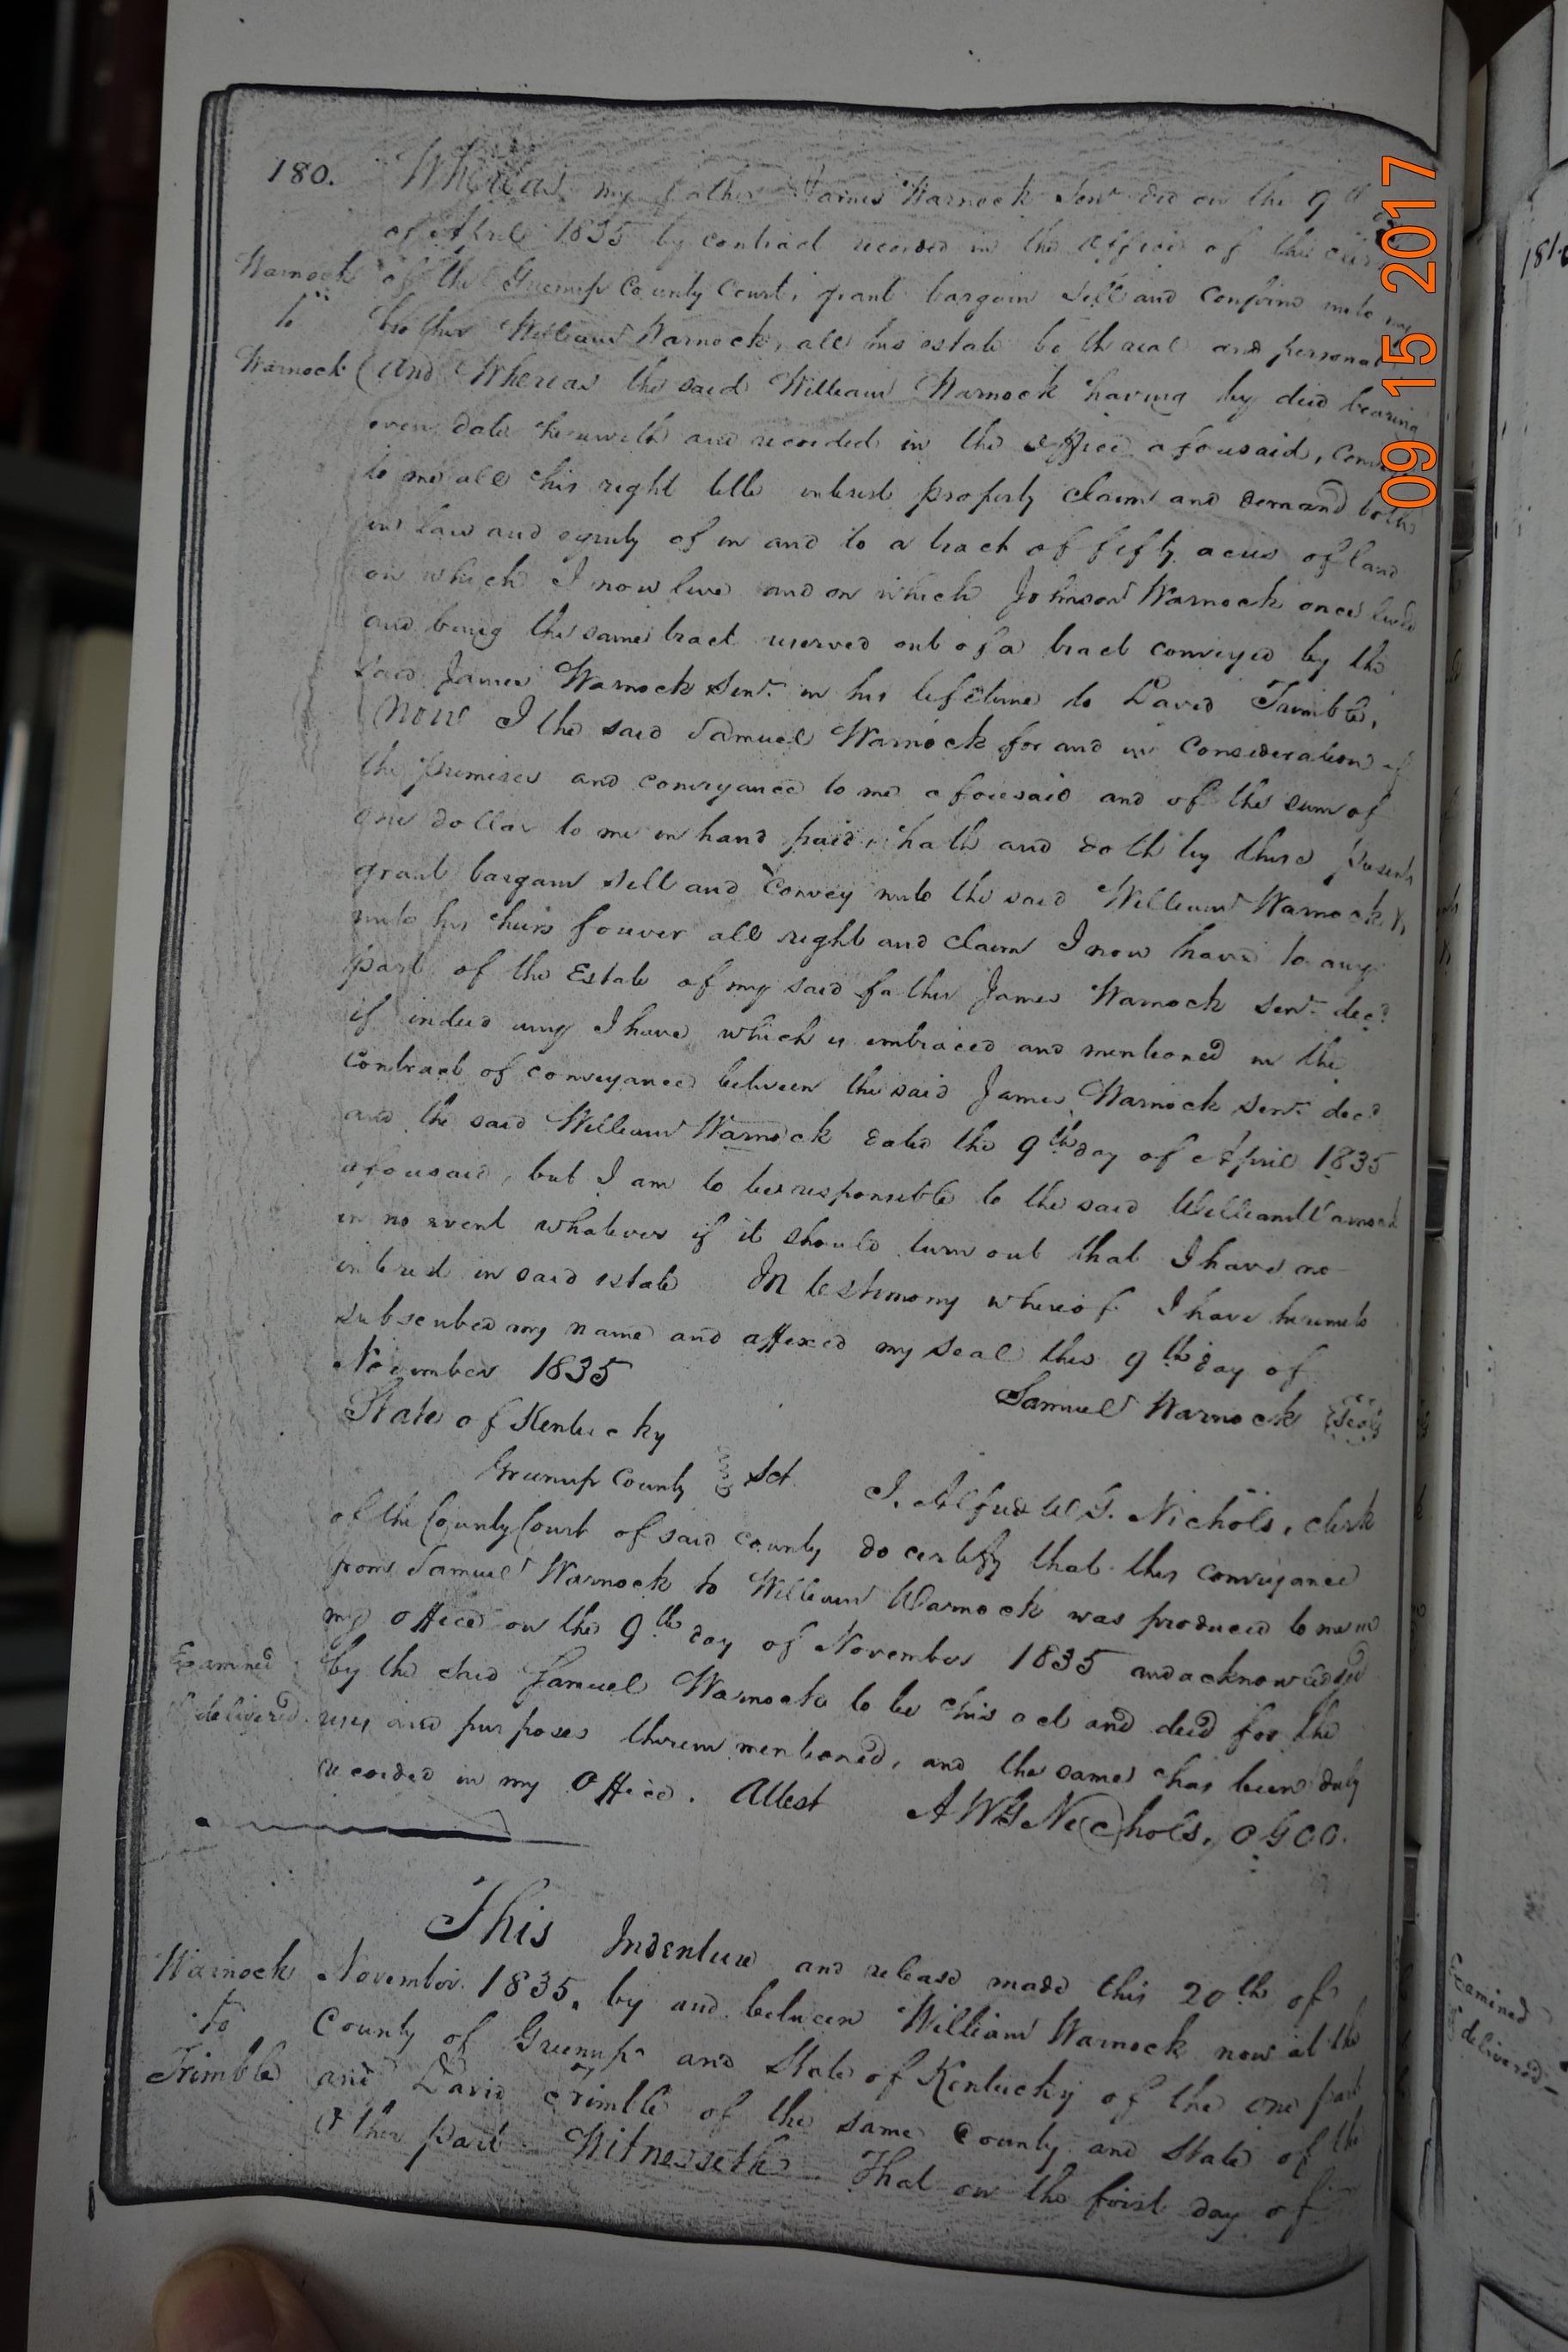 180. Whereas my father James Warnock Senr did on the 9th
of April 1835 by contract recorded in the office of the
Warnock of the Greenup County Court, grant bargain sell and confirm unto my
to brother William Warnock, all his estate both real and personal
Warnock (And Whereas the said William Warnock having by deed bearing
even date herewith and recorded in the office aforesaid,
to me all his right title interest property claim and demand both
in law and equity of in and to a tract of fifty acres of land
on which I now live and on which Johnson Warnock once lived
and being the same tract reserved out of a tract conveyed by the
said James Warnock Senr. in his lifetime to David Trimble,
Now I the said Samuel Warnock for and in consideration of
the premises and conveyance to me aforesaid and of the sum of
one dollar to me in hand paid, hath and doth by these presents
grant bargain sell and convey unto the said William Warnock &
unto his heirs forever all right and claim I now have to any
part of the Estate of my said father James Warnock Senr. decd
if indeed any I have which is embraced and mentioned in the
contract of conveyance between the said James Warnock Senr. decd
and the said William Warnock dated the 9th day of April 1835
aforesaid, but I am to be responsible to the said William Warnock
in no event whatever if it should turn out that I have no
interest in said estate In testimony whereof I have hereunto
subscribed my name and affixed my seal this 9th day of
November 1835
Samuel Warnock Seal
State of Kentucky
Greenup County Sct. I. Alfred W G. Nichols, clerk
of the County Court of said county do certify that this conveyance
from Samuel Warnock to William Warnock was produced to me in
my office on the 9th day of November 1835 and acknowledged
Examined by the said Samuel Warnock to be his act and deed for the
& delivered uses and purposes therein mentioned, and the same has been duly
recorded in my Office. Attest A W G Nichols, C G C C.
This Indenture and release made this 20th of
Warnock November 1835. by and between William Warnock now of the
to County of Greenup and State of Kentucky of the one part
Trimble and David Trimble of the same County and State of the
Other part Witnesseth That on the first day of
181
Examined
& delivered
09 15 2017